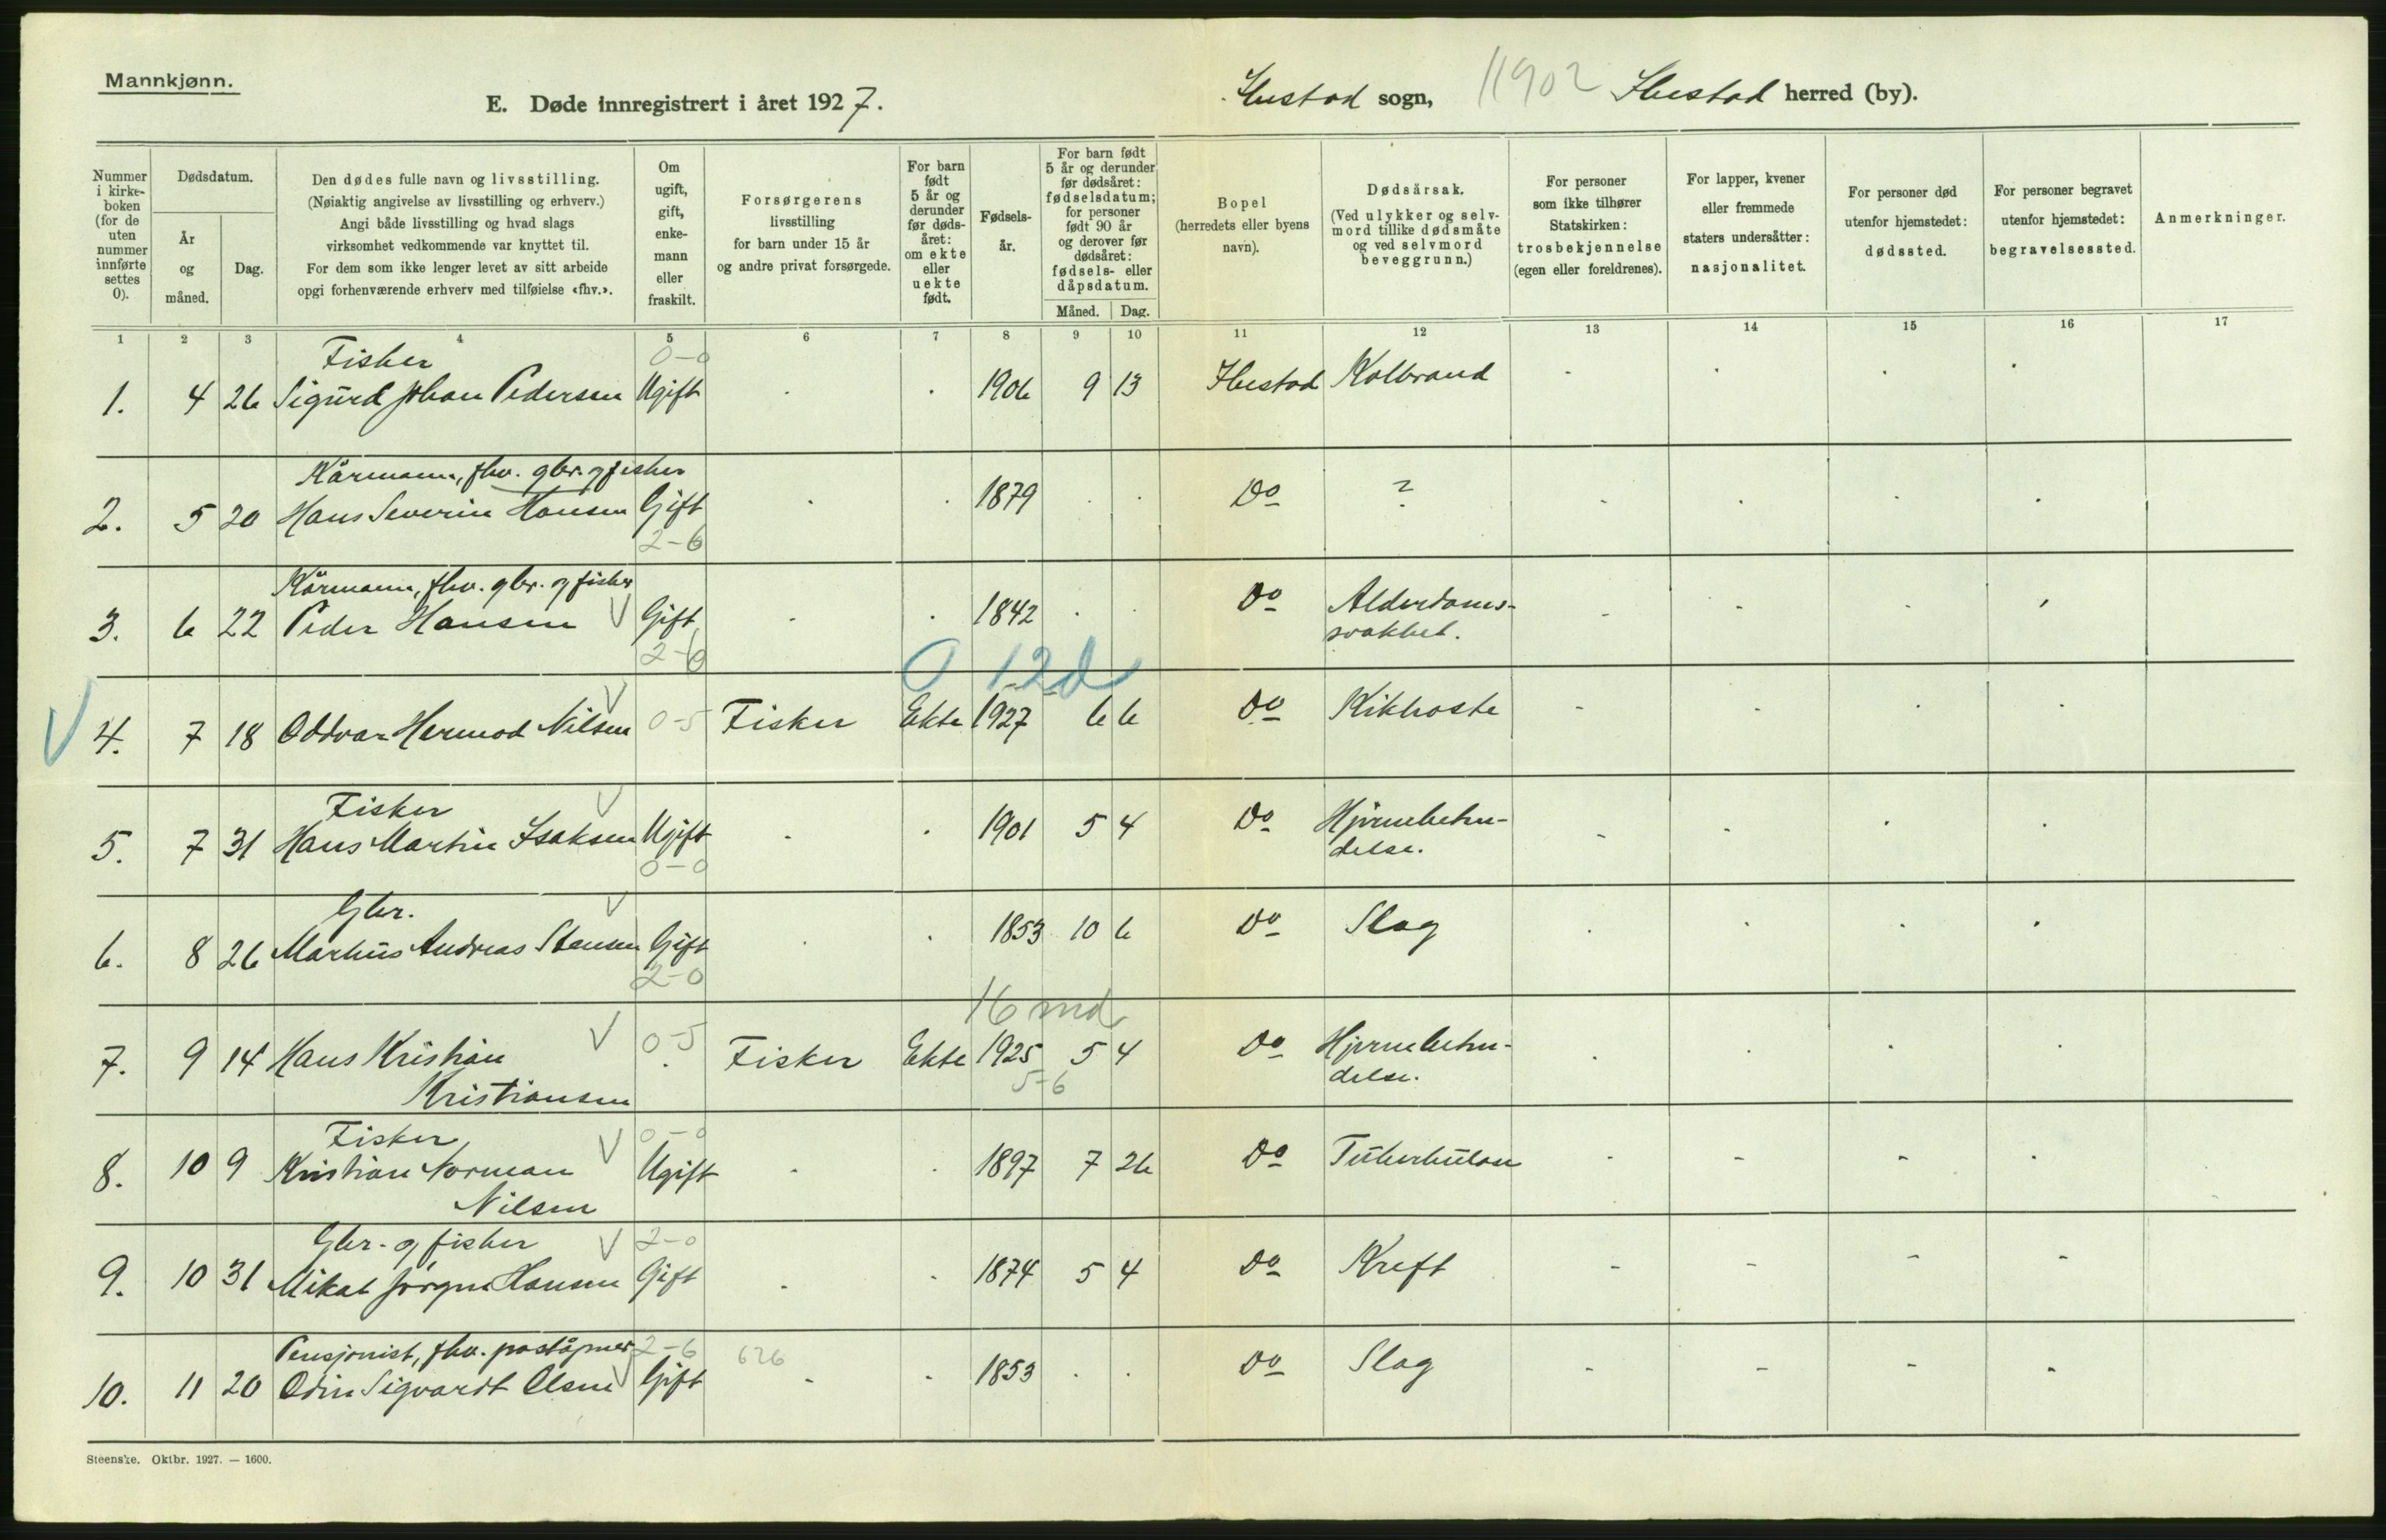 Mannkjønn.
E. Døde innregistrert i året 1927.
Ibestad sogn, 1902 Ibestad herred (by).
Nummer i kirke-boken (for de uten nummer innførte settes 0).
Dødsdatum.
År og måned.
Dag.
Den dødes fulle navn og livsstilling.
(Nøiaktig angivelse av livsstilling og erhverv.)
Angi både livsstilling og hvad slags
virksomhet vedkommende var knyttet til.
For dem som ikke lenger levet av sitt arbeide
opgi forhenværende erhverv med tilføielse «fhv.».
Om ugift, gift, enke-mann eller fraskilt.
Forsørgerens
livsstilling
for barn under 15 år
og andre privat forsørgede.
For barn født 5 år og derunder før døds-året: om ekte eller uekte født.
Fødsels-år.
For barn født 5 år og derunder før dødsåret: fødselsdatum; for personer født 90 år og derover før dødsåret: fødsels- eller dåpsdatum.
Måned. Dag.
Bopel
(herredets eller byens navn).
Dødsårsak.
(Ved ulykker og selv-mord tillike dødsmåte og ved selvmord beveggrunn.)
For personer som ikke tilhører Statskirken: trosbekjennelse (egen eller foreldrenes).
For lapper, kvener eller fremmede staters undersåtter: nasjonalitet.
For personer død utenfor hjemstedet: dødssted.
For personer begravet utenfor hjemstedet: begravelsessted.
Anmerkninger.
1 2 3 4 5 6 7 8 9 10 11 12 13 14 15 16 17
Fisker 0-0
1. 4 26 Sigurd Johan Pedersen Ugift 1906 9 13 Ibestad Kolbrand
Kårmann, fhv. gbr. og fisker
2. 5 20 Hans Severin Hansen Gift 1879 Do ?
2-6
Kårmann, fhv. gbr. og fisker
3. 6 22 Peder Hansen V Gift 1842 Do Alderdoms-
svakhet.
2-6
0 12d
V 4. 7 18 Oddvar Hermod Nilsen V 0-5 Fisker Ekte 1927 6 6 Do Kikhoste
Fisker V
5. 7 31 Hans Martin Isaksen Ugift 1901 5 4 Do Hjernebeten-
delse.
0-0
Gbr. V
6. 8 26 Markus Andreas Stensen Gift 1853 10 6 Do Slag
2-0
16 md
7. 9 14 Hans Kristian V 0-5 Fisker Ekte 1925 5 4 Do Hjernebeten-
delse.
Kristiansen 5-6
Fisker V 0-0
8. 10 9 Kristian Norman Ugift 1897 7 26 Do Tuberkulose
Nilsen
Gbr. og fisker V 2-0
9. 10 31 Mikal Jørgen Hansen Gift 1874 5 4 Do Kreft
Pensjonist, fhv. poståpner 2-6 626
10. 11 20 Odin Sigvardt Olsen V Gift 1853 Do Slag
Steenske. Oktbr. 1927. — 1600.